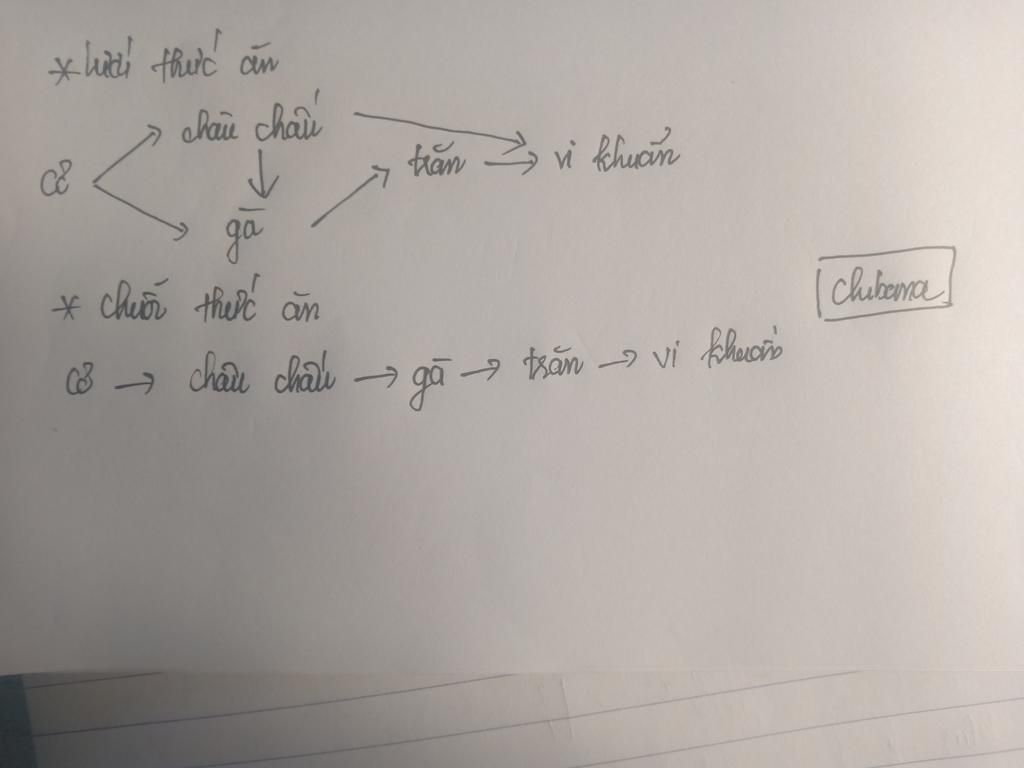 * lưới thức ăn
châu chấu
cỏ
trăn → vi khuẩn
gà
* chuỗi thức ăn
chubema
cỏ → châu chấu → gà → trăn → vi khuẩn